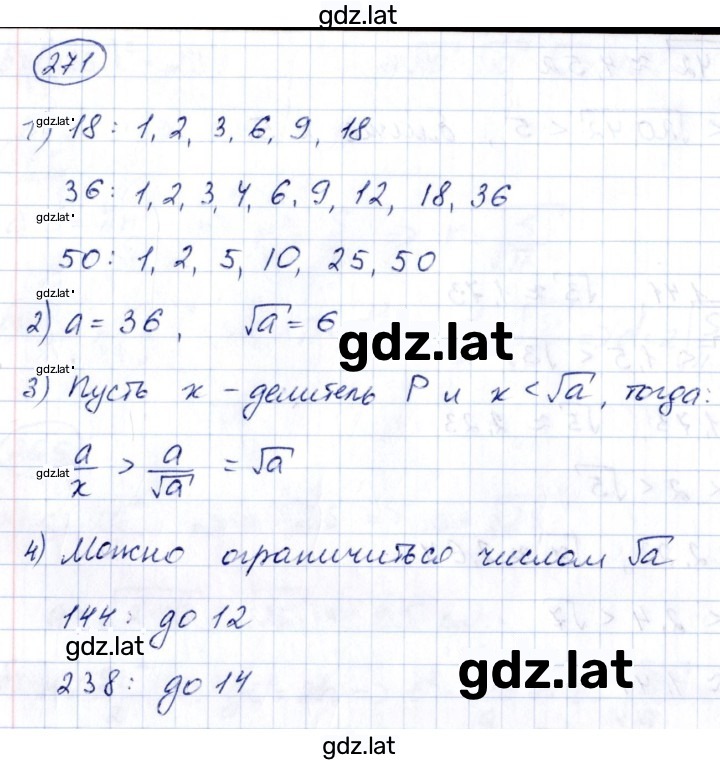 gdz.lat
271
gdz.lat
1) 18: 1, 2, 3, 6, 9, 18
36: 1, 2, 3, 4, 6, 9, 12, 18, 36
gdz.lat
50: 1, 2, 5, 10, 25, 50
gdz.lat
2) a = 36, √a = 6
gdz.lat
gdz.lat
3) Пусть x - делитель P и x < √a, тогда:
gdz.lat
a/x > a/√a = √a
4) Можно ограничиться числом √a
144: до 12
gdz.lat
238: до 14
gdz.lat
gdz.lat